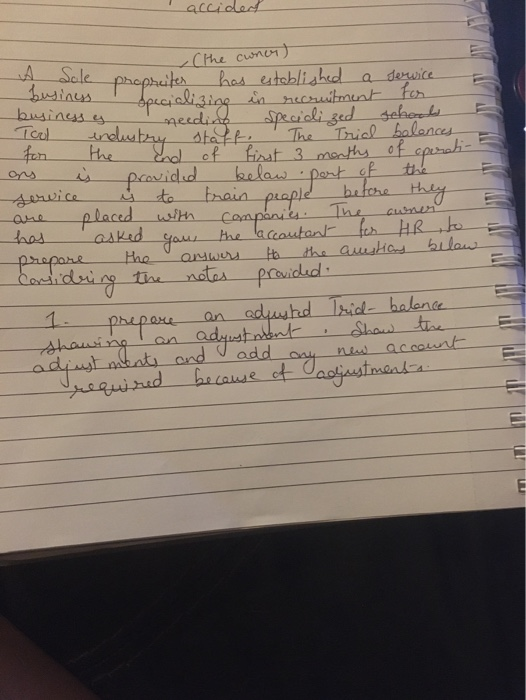 accident
(the owner)
A Sole propriter has established a service
business specializing in recruitment for
businesses needing specialized schools
Tool industry staff. The Trial balances
for the end of first 3 months of operati-
ons is provided below. part of the
service is to train people before they
are placed with companies. The owner
has asked you, the accoutant for HR, to
prepare the answers to the questions below
Considring the notes provided.
1. prepare an adjusted Trial-balance
showing an adjustment. Show the
adjustments and add any new account
required because of adjustments.